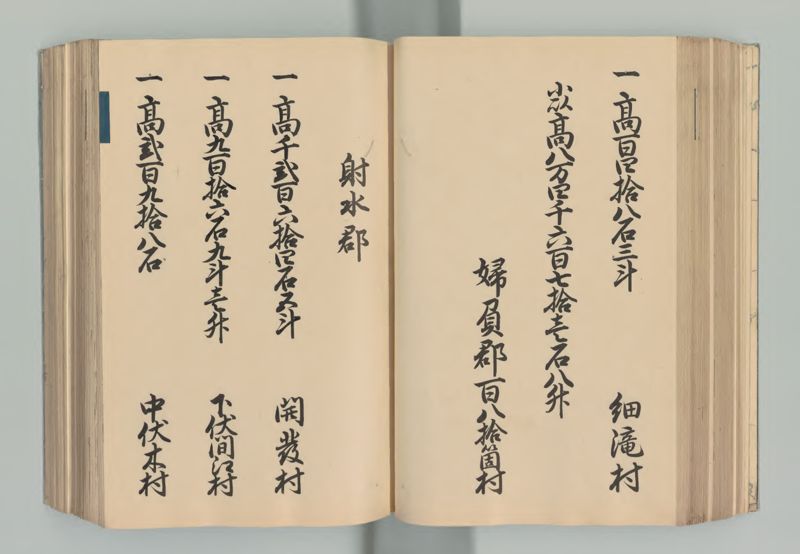 一 高百四拾八石三斗 細滝村
小以高八万四千六百七拾壱石八升
婦負郡百八拾箇村
射水郡
一 高千弐百六拾四石五斗 開發村
一 高九百拾六石九斗壱升 下伏間江村
一 高弐百九拾八石 中伏木村